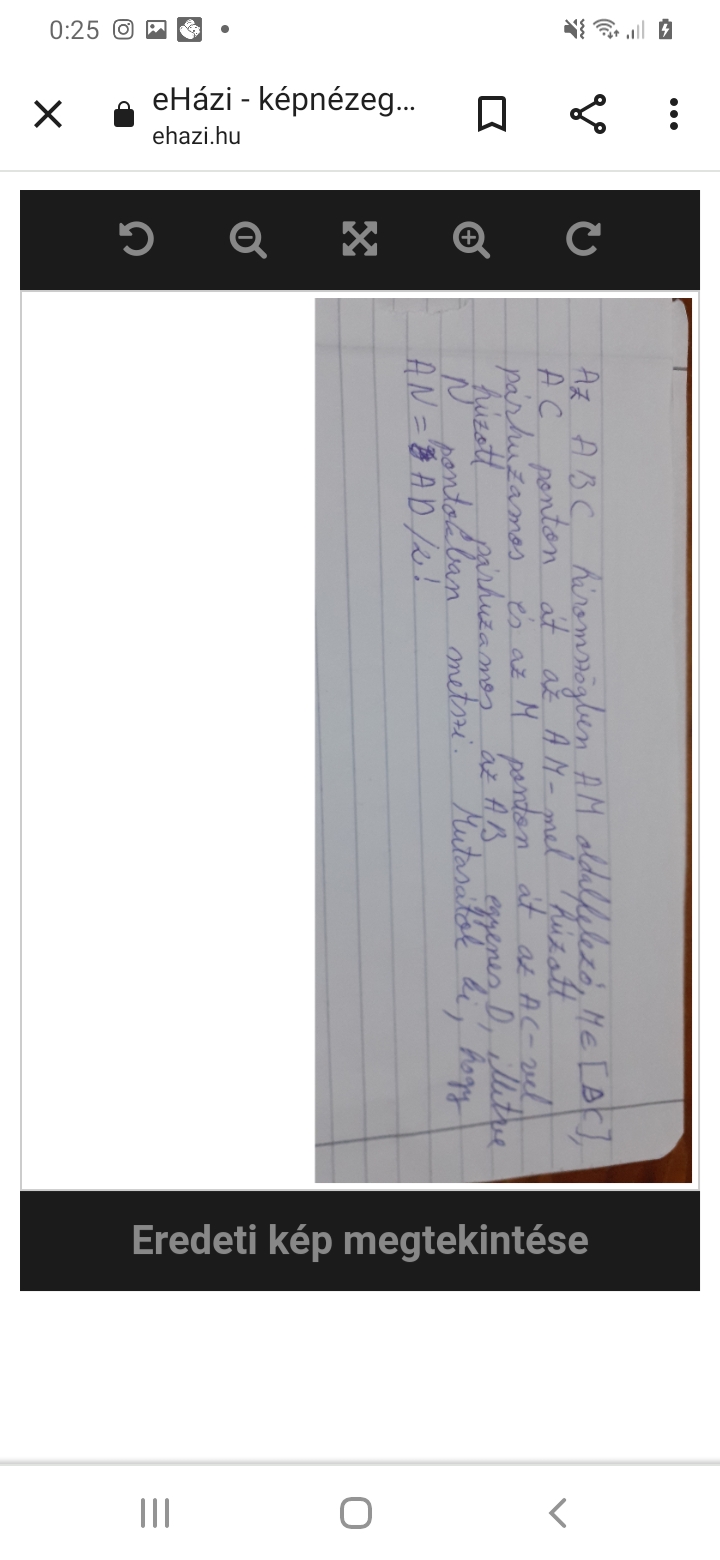 0:25
eHázi - képnézeg...
ehazi.hu
Az ABC háromszögben AM oldalfelező, M∈[BC],
A C ponton át az AM-mel húzott
párhuzamos és az M ponton át az AC-vel
húzott párhuzamos az AB egyenes D, illetve
N pontokban metszi. Mutassátok ki, hogy
AN = AD/2!
Eredeti kép megtekintése